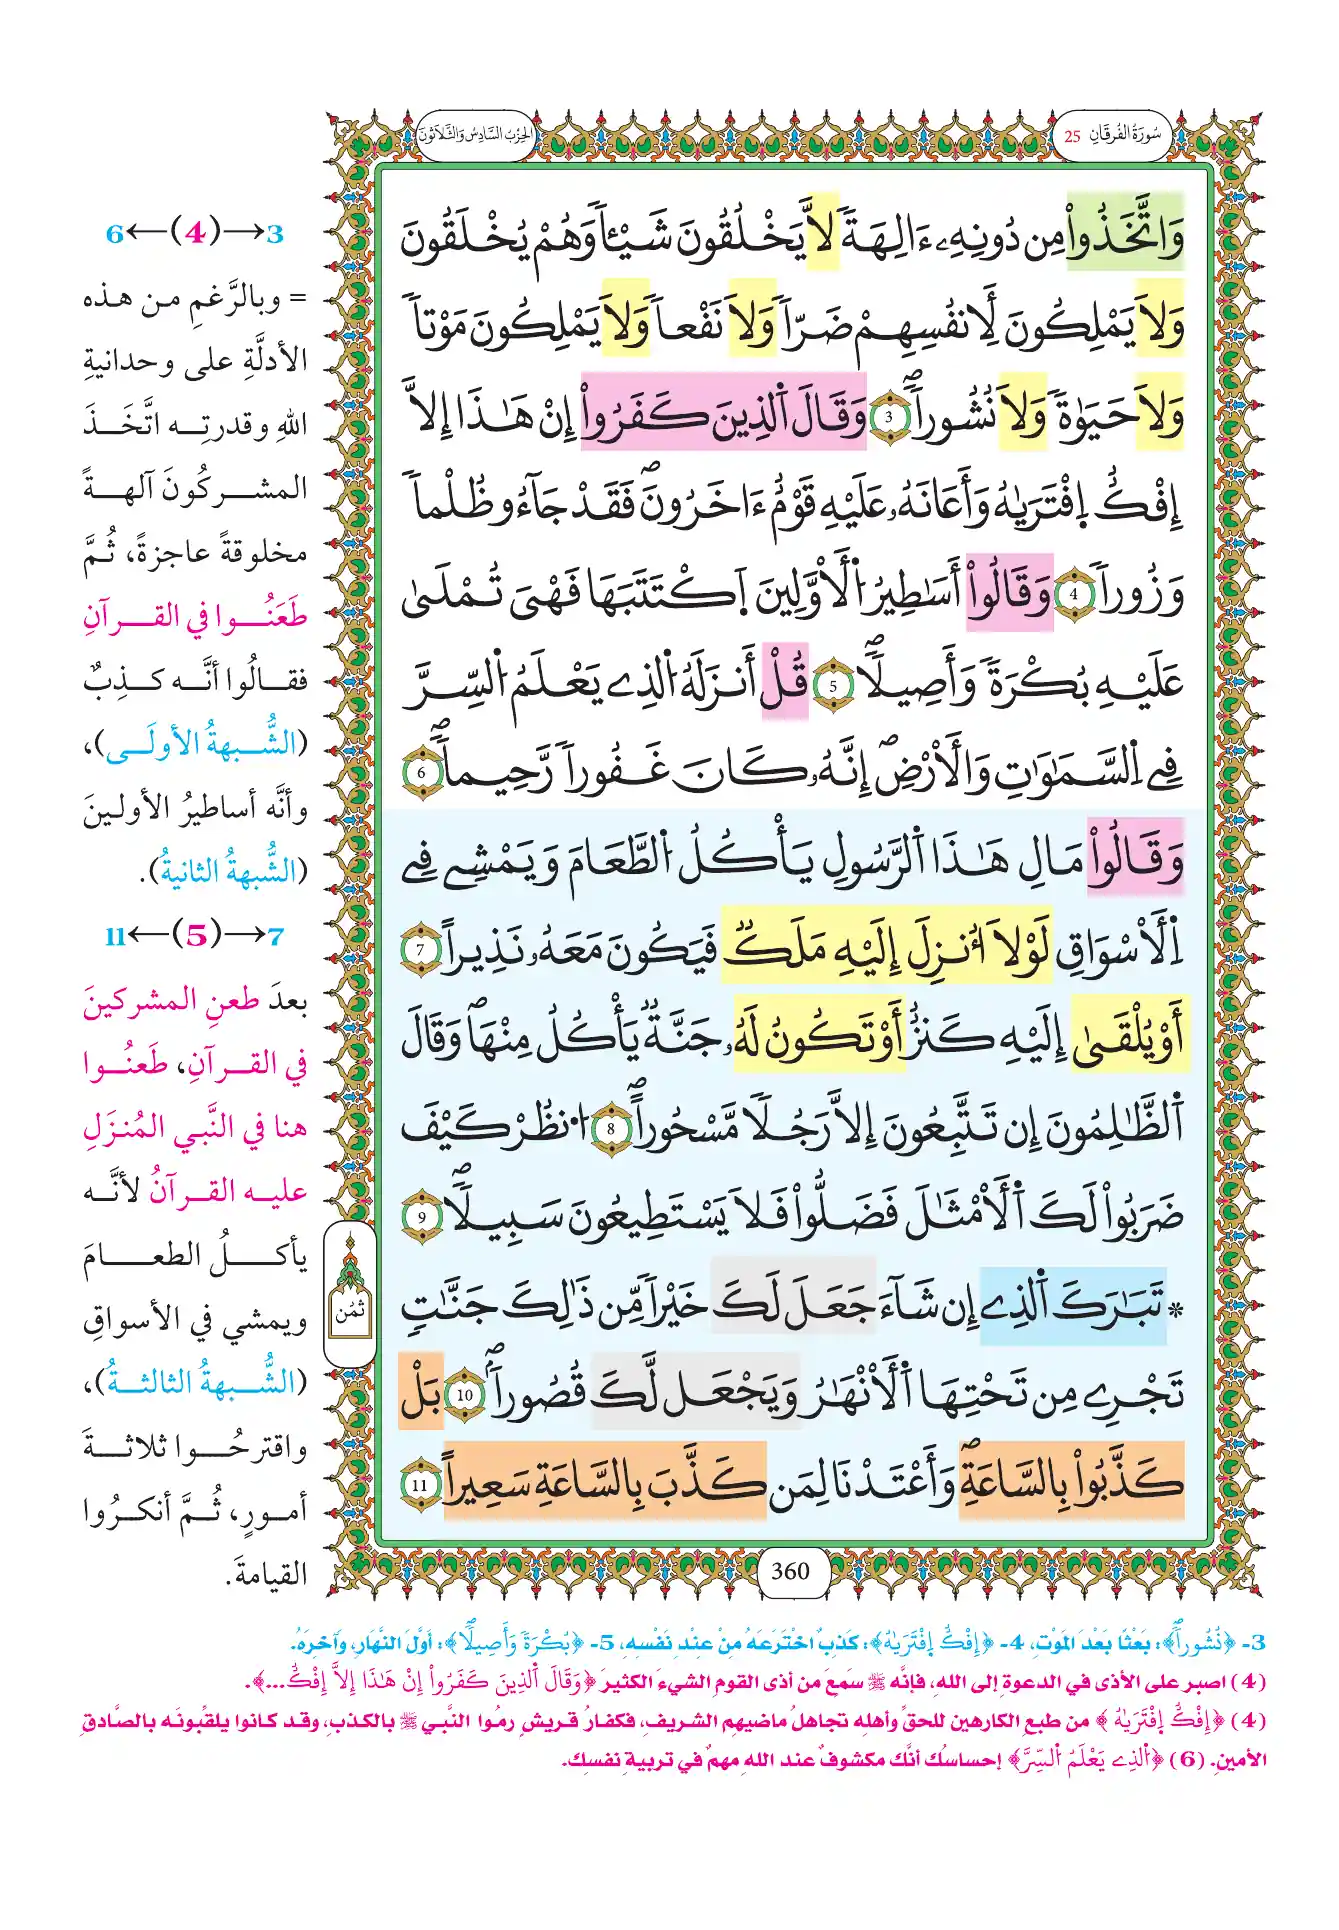 سُورَةُ الفُرْقَانِ 25
الحِزْبُ السَّادِسُ وَالثَّلَاثُونَ
وَاتَّخَذُواْ مِن دُونِهِۦ ءَالِهَةٗ لَّا يَخْلُقُونَ شَيْـٔاٗ وَهُمْ يُخْلَقُونَ
وَلَا يَمْلِكُونَ لِأَنفُسِهِمْ ضَرّاٗ وَلَا نَفْعاٗ وَلَا يَمْلِكُونَ مَوْتاٗ
وَلَا حَيَوٰةٗ وَلَا نُشُوراٗۖ 3 وَقَالَ اَ۬لذِينَ كَفَرُواْ إِنْ هَٰذَا إِلَّا
إِفْكٌ اِ۪فْتَر۪يٰهُ وَأَعَانَهُۥ عَلَيْهِ قَوْمٌ ءَاخَرُونَۖ فَقَدْ جَآءُو ظُلْماٗ
وَزُوراٗ 4 وَقَالُواْ أَسَٰطِيرُ اُ۬لْأَوَّلِينَ اَ۪كْتَتَبَهَا فَهْيَ تُمْلَىٰ
عَلَيْهِ بُكْرَةٗ وَأَصِيلاٗۖ 5 قُلْ أَنزَلَهُ اُ۬لذِے يَعْلَمُ اُ۬لسِّرَّ
فِے اِ۬لسَّمَٰوَٰتِ وَالْأَرْضِۖ إِنَّهُۥ كَانَ غَفُوراٗ رَّحِيماٗۖ 6
وَقَالُواْ مَالِ هَٰذَا اَ۬لرَّسُولِ يَأْكُلُ اُ۬لطَّعَامَ وَيَمْشِے فِے
اِ۬لْأَسْوَاقِ لَوْلَا أُنزِلَ إِلَيْهِ مَلَكٌ فَيَكُونَ مَعَهُۥ نَذِيراً 7
أَوْ يُلْقَىٰ إِلَيْهِ كَنزٌ أَوْ تَكُونُ لَهُۥ جَنَّةٌ يَأْكُلُ مِنْهَاۖ وَقَالَ
اَ۬لظَّٰلِمُونَ إِن تَتَّبِعُونَ إِلَّا رَجُلاٗ مَّسْحُوراًۖ 8 اُ۟نظُرْ كَيْفَ
ضَرَبُواْ لَكَ اَ۬لْأَمْثَٰلَ فَضَلُّواْ فَلَا يَسْتَطِيعُونَ سَبِيلاٗۖ 9
* تَبَٰرَكَ اَ۬لذِے إِن شَآءَ جَعَلَ لَكَ خَيْراٗ مِّن ذَٰلِكَ جَنَّٰتٖ
تَجْرِے مِن تَحْتِهَا اَ۬لْأَنْهَٰرُ وَيَجْعَل لَّكَ قُصُوراَۢۖ 10 بَلْ
كَذَّبُواْ بِالسَّاعَةِۖ وَأَعْتَدْنَا لِمَن كَذَّبَ بِالسَّاعَةِ سَعِيراً 11
ثُمُن
360
3→(4)←6
= وبالرَّغمِ من هذه
الأدلَّةِ على وحدانيةِ
اللهِ وقدرتِه اتَّخَذَ
المشركُونَ آلهةً
مخلوقةً عاجزةً، ثُمَّ
طَعَنُوا في القرآنِ
فقالُوا أنَّه كذِبٌ
(الشُّبهةُ الأولَى)،
وأنَّه أساطيرُ الأولينَ
(الشُّبهةُ الثانيةُ).
7→(5)←11
بعدَ طعنِ المشركينَ
في القرآنِ، طَعَنُوا
هنا في النَّبي المُنزَلِ
عليه القرآنُ لأنَّه
يأكلُ الطعامَ
ويمشي في الأسواقِ
(الشُّبهةُ الثالثةُ)،
واقترحُوا ثلاثةَ
أمورٍ، ثُمَّ أنكرُوا
القيامةَ.
3- ﴿نُشُوراٗۖ﴾: بَعْثًا بَعْدَ المَوْتِ، 4- ﴿إِفْكٌ اِ۪فْتَر۪يٰهُ﴾: كَذِبٌ اخْتَرَعَهُ مِنْ عِنْدِ نَفْسِهِ، 5- ﴿بُكْرَةٗ وَأَصِيلاٗۖ﴾: أَوَّلَ النَّهَارِ، وَآخِرَهُ.
(4) اصبر على الأذى في الدعوة إلى الله، فإنَّه ﷺ سَمِعَ من أذى القومِ الشيءَ الكثيرَ ﴿وَقَالَ اَ۬لذِينَ كَفَرُواْ إِنْ هَٰذَا إِلَّا إِفْكٌ...﴾.
(4) ﴿إِفْكٌ اِ۪فْتَر۪يٰهُ﴾ من طبعِ الكارهين للحقِّ وأهلِه تجاهلُ ماضيهم الشريف، فكفارُ قريشٍ رمُوا النَّبي ﷺ بالكذبِ، وقد كانوا يلقِّبونَه بالصَّادقِ
الأمينِ. (6) ﴿اُ۬لذِے يَعْلَمُ اُ۬لسِّرَّ﴾ إحساسُك أنَّك مكشوفٌ عند اللهِ مهمٌ في تربيةِ نفسِك.